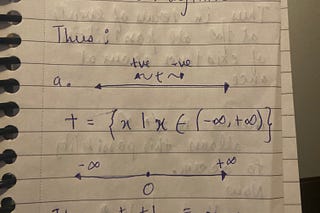 Thus ;
+ve -ve
a. ~ t ~
t = { x | x ∈ (-∞, +∞) }
-∞ +∞
0